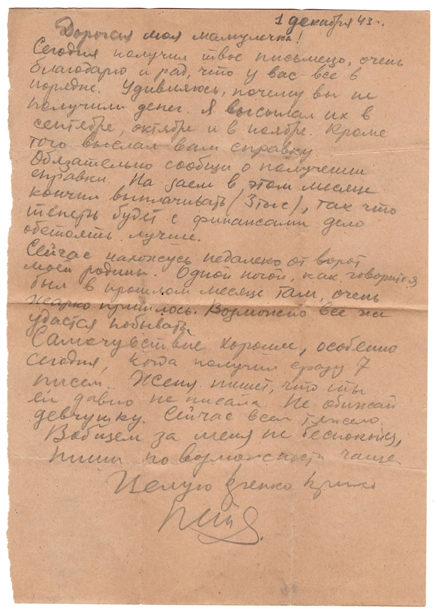 1 декабря 43 г.
Дорогая моя мамулечка!
Сегодня получил твое письмецо, очень
благодарю и рад, что у вас все в
порядке. Удивляюсь, почему вы не
получили денег. Я высылал их в
сентябре, октябре и в ноябре. Кроме
того выслал вам справку
Обязательно сообщи о получении
справки. На заем в этом месяце
кончил выплачивать (3 тыс), так что
теперь будет с финансами дело
обстоять лучше.
Сейчас нахожусь недалеко от ворот
моей родины. Одной ногой, как говорится
был в прошлом месяце там, очень
жарко пришлось. Возможно все же
удастся побывать.
Самочувствие хорошее, особенно
сегодня, когда получил сразу 7
писем. Женя пишет, что ты
ей давно не писала. Не обижай
девчушку. Сейчас всем тяжело.
Вобщем за меня не беспокойся,
пиши по возможности чаще
Целую крепко крепко